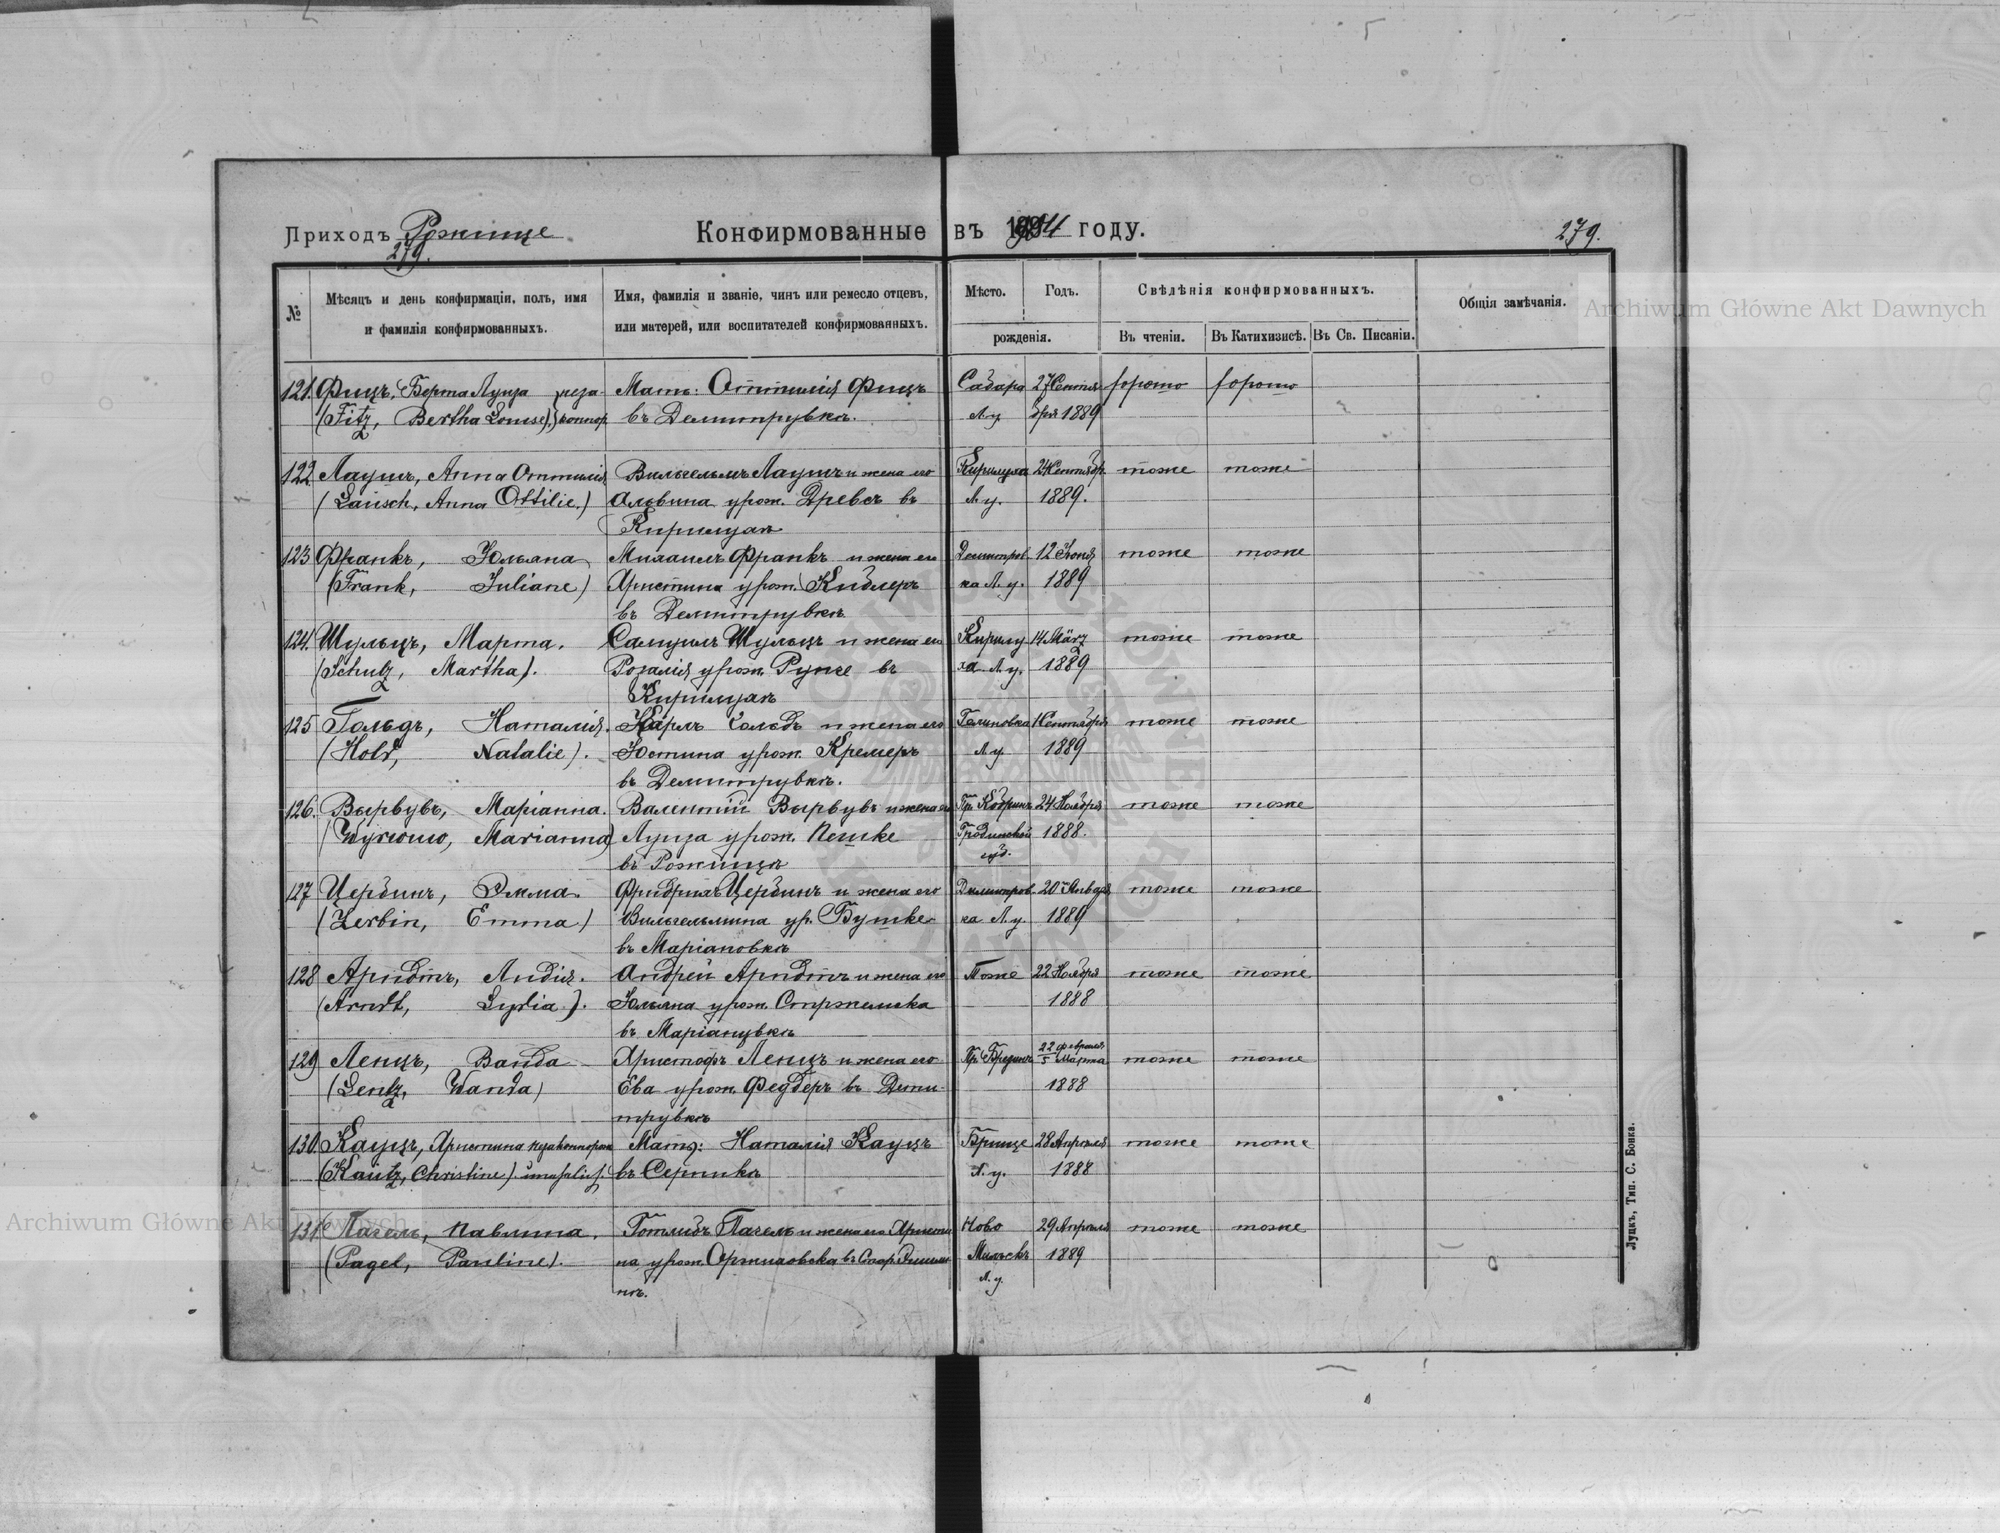 Приходъ Рожище
279.
Конфирмованные въ 1904 году.
279.
№
Мѣсяцъ и день конфирмаціи, полъ, имя
и фамилія конфирмованныхъ.
Имя, фамилія и званіе, чинъ или ремесло отцевъ,
или матерей, или воспитателей конфирмованныхъ.
Мѣсто.
Годъ.
рожденія.
Свѣдѣнія конфирмованныхъ.
Въ чтеніи.
Въ Катихизисѣ.
Въ Св. Писаніи.
Общія замѣчанія.
Archiwum Główne Akt Dawnych
121. Фицъ, Берта Луиза неза- Мать: Оттилія Фицъ Садова 27 Сентя хорошо хорошо
(Fitz, Bertha Louise) коннор. въ Демитрувкѣ. Л.у. бря 1889
122 Лаушъ, Анна Оттилія Вильгельмъ Лаушъ и жена его Кирилуха 24 Сентябр. тоже тоже
(Lausch, Anna Ottilie.) Альвина урож. Древсъ въ Л.у. 1889.
Кирилухѣ
123 Франкъ, Юльяна Михаилъ Франкъ и жена его Демитров 12 Іюня тоже тоже
(Frank, Juliane) Христина урож. Кидлеръ ка Л.у. 1889
въ Демитрувкѣ
124. Шульцъ, Марта. Самуилъ Шульцъ и жена его Кирилу 14 März тоже тоже
(Schulz, Martha). Розалія урож. Рунге въ ха Л.у. 1889
Кирилухѣ
125 Гольдъ, Наталія. Карлъ Гольдъ и жена его Галиновка 1 Сентября тоже тоже
(Hold, Natalie). Юстина урож. Кремеръ Л.у. 1889
въ Демитрувкѣ.
126. Вырвувъ, Маріанна. Валентій Вырвувъ и жена его Пр. Кобринъ 24 Ноября тоже тоже
(Wyrwuw, Marianna) Луиза урож. Пешке Гродненской 1888.
въ Рожищѣ губ.
127 Цербинъ, Эмма. Фридрихъ Цербинъ и жена его Димитров 20 Января тоже тоже
(Zerbin, Emma) Вильгельмина ур. Бутке ка Л.у. 1889
въ Маріановкѣ
128 Арндтъ, Лидія. Андрей Арндтъ и жена его Тоже 22 Ноября тоже тоже
(Arndt, Lydia). Юльяна урож. Стржелиска 1888
въ Маріанувкѣ
129 Ленцъ, Ванда Христофъ Ленцъ и жена его 22 февраля тоже тоже
5 Марта
(Lentz, Wanda) Ева урож. Федберъ въ Дими 1888
трувкѣ
130. Кауцъ, Христина Мать: Наталія Кауцъ Брище 28 Апрѣля тоже тоже
(Kautz, Christine) въ Серникѣ Л.у. 1888
131. Пагель, Павлина. Готлибъ Пагель и жена его Христи Ново 29 Апрѣля тоже тоже
(Pagel, Pauline). на урож. въ Стар. Мильскъ 1889
Л.у.
Луцкъ, Тип. С. Бонка.
Archiwum Główne Akt Dawnych